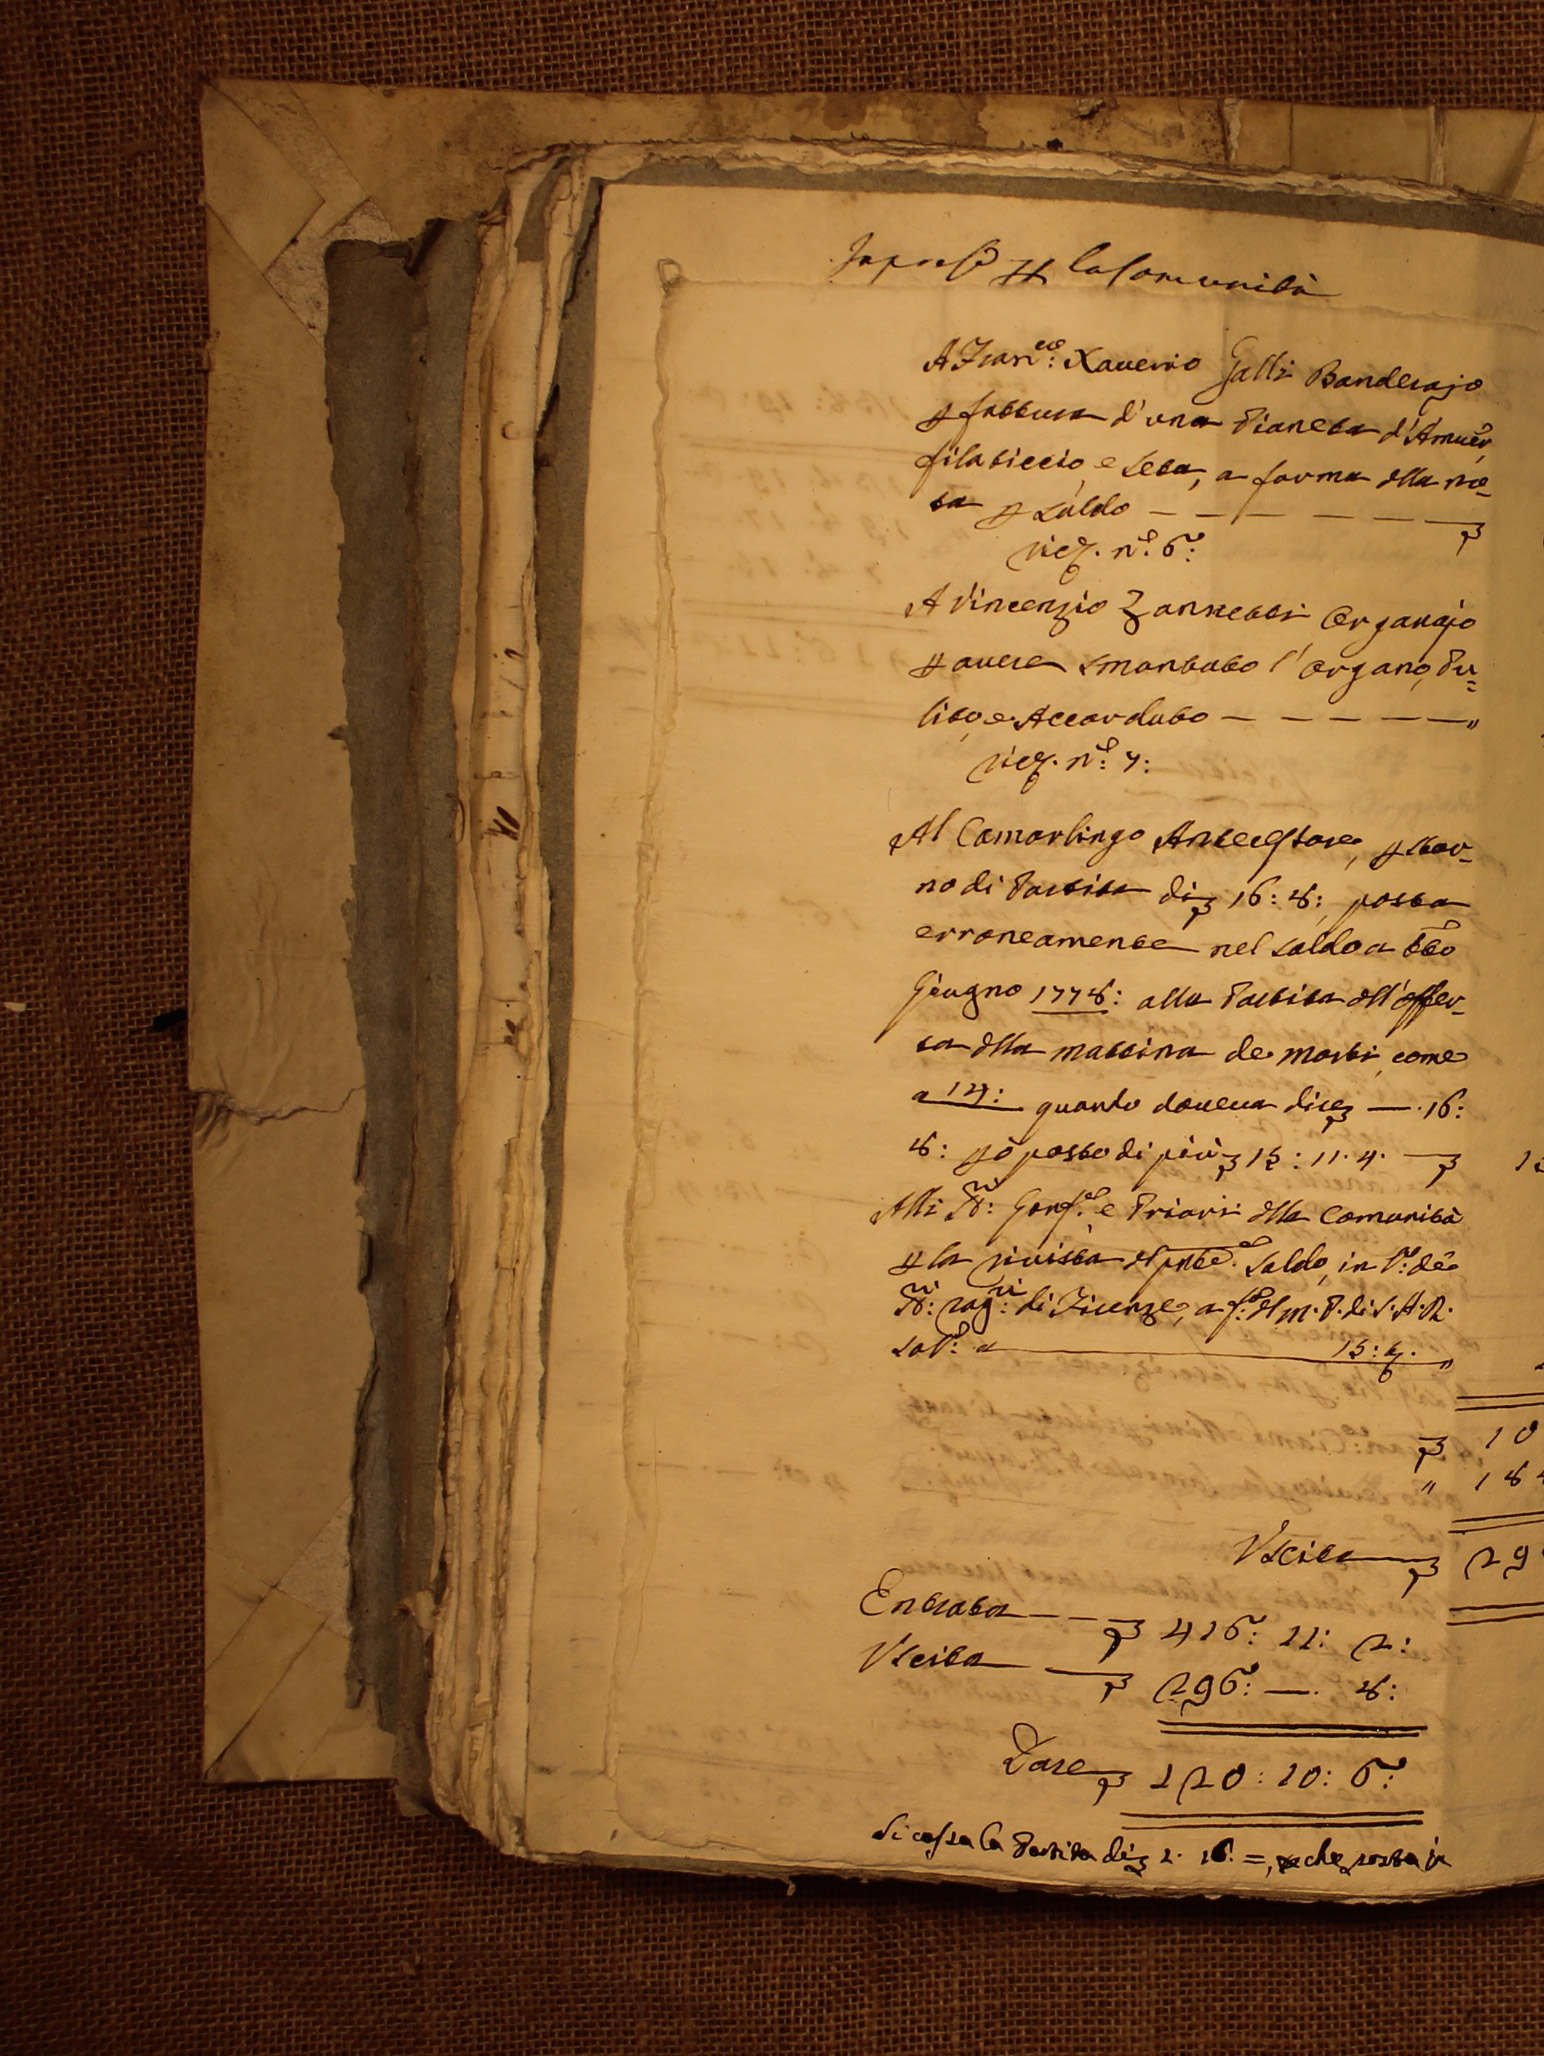 A Fran.co: Xaverio Galli Banderajo
p fattura d'una Pianeta d'Amuer,
filaticcio, e seta, a forma dlla no-
ta p saldo — — — — — —
ric. n.o: 6:
A Vincenzio Zannetti Organajo
p avere smontato l'organo, Pu=
lito, e Accordato — — — — — "
ric. n.o: 7:
Al Camarlingo Antecessore, p stor-
no di Partita di 16: 8: posta
erroneamente nel saldo a tto
Giugno 1778: alla Partita dll'offer-
ta dlla mattina de morti, come
a 14: quando doveva dire —. 16:
8: p ò posto di più 15: 11. 4. —
Alli Gonf.e, e Priori dlla Comunità
p la rivista saldo, in
di Firenze, a di S. A. R.
a 15:
10
" 18
Uscita — 29
Entrata — — 416: 11: 2:
Uscita — 296: —. 8:
Dare 120: 10: 6:
Si cassa la Partita di 2. 16. =, che resta in